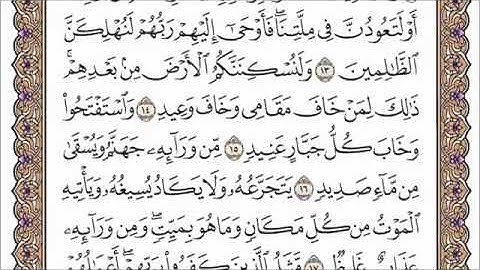 أَوْ لَتَعُودُنَّ فِى مِلَّتِنَا ۖ فَأَوْحَىٰٓ إِلَيْهِمْ رَبُّهُمْ لَنُهْلِكَنَّ
ٱلظَّٰلِمِينَ ١٣ وَلَنُسْكِنَنَّكُمُ ٱلْأَرْضَ مِنۢ بَعْدِهِمْ ۚ
ذَٰلِكَ لِمَنْ خَافَ مَقَامِى وَخَافَ وَعِيدِ ١٤ وَٱسْتَفْتَحُوا۟
وَخَابَ كُلُّ جَبَّارٍ عَنِيدٍ ١٥ مِّن وَرَآئِهِۦ جَهَنَّمُ وَيُسْقَىٰ
مِن مَّآءٍ صَدِيدٍ ١٦ يَتَجَرَّعُهُۥ وَلَا يَكَادُ يُسِيغُهُۥ وَيَأْتِيهِ
ٱلْمَوْتُ مِن كُلِّ مَكَانٍ وَمَا هُوَ بِمَيِّتٍ ۖ وَمِن وَرَآئِهِۦ
عَذَابٌ غَلِيظٌ ١٧ مَّثَلُ ٱلَّذِينَ كَفَرُوا۟ بِرَبِّهِمْ ۖ أَعْمَٰلُهُمْ